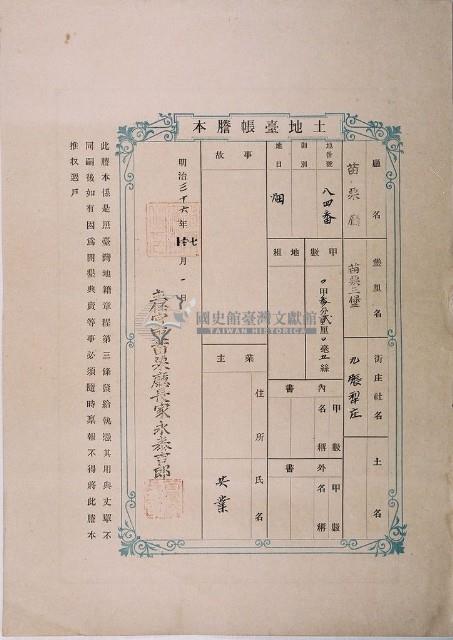 土地臺帳謄本
廳名
苗栗廳
堡里名
苗栗三堡
街庄社名
九張犁庄
土名
地番號
八四番
則別
地目
畑
甲數
〇甲參分貳厘〇毫五絲
地租
內書
甲數
名稱
外書
甲數
名稱
事故
業主
住所
氏名
共業
明治三十六年
月一日
苗栗廳長家永泰吉郎
此謄本係是照臺灣地籍章程第三條發給執憑其用與丈單不
同嗣後如有因爲開墾典賣等事必須隨時稟報不得將此謄本
推收過戶
國史館臺灣文獻館
TAIWAN HISTORICA